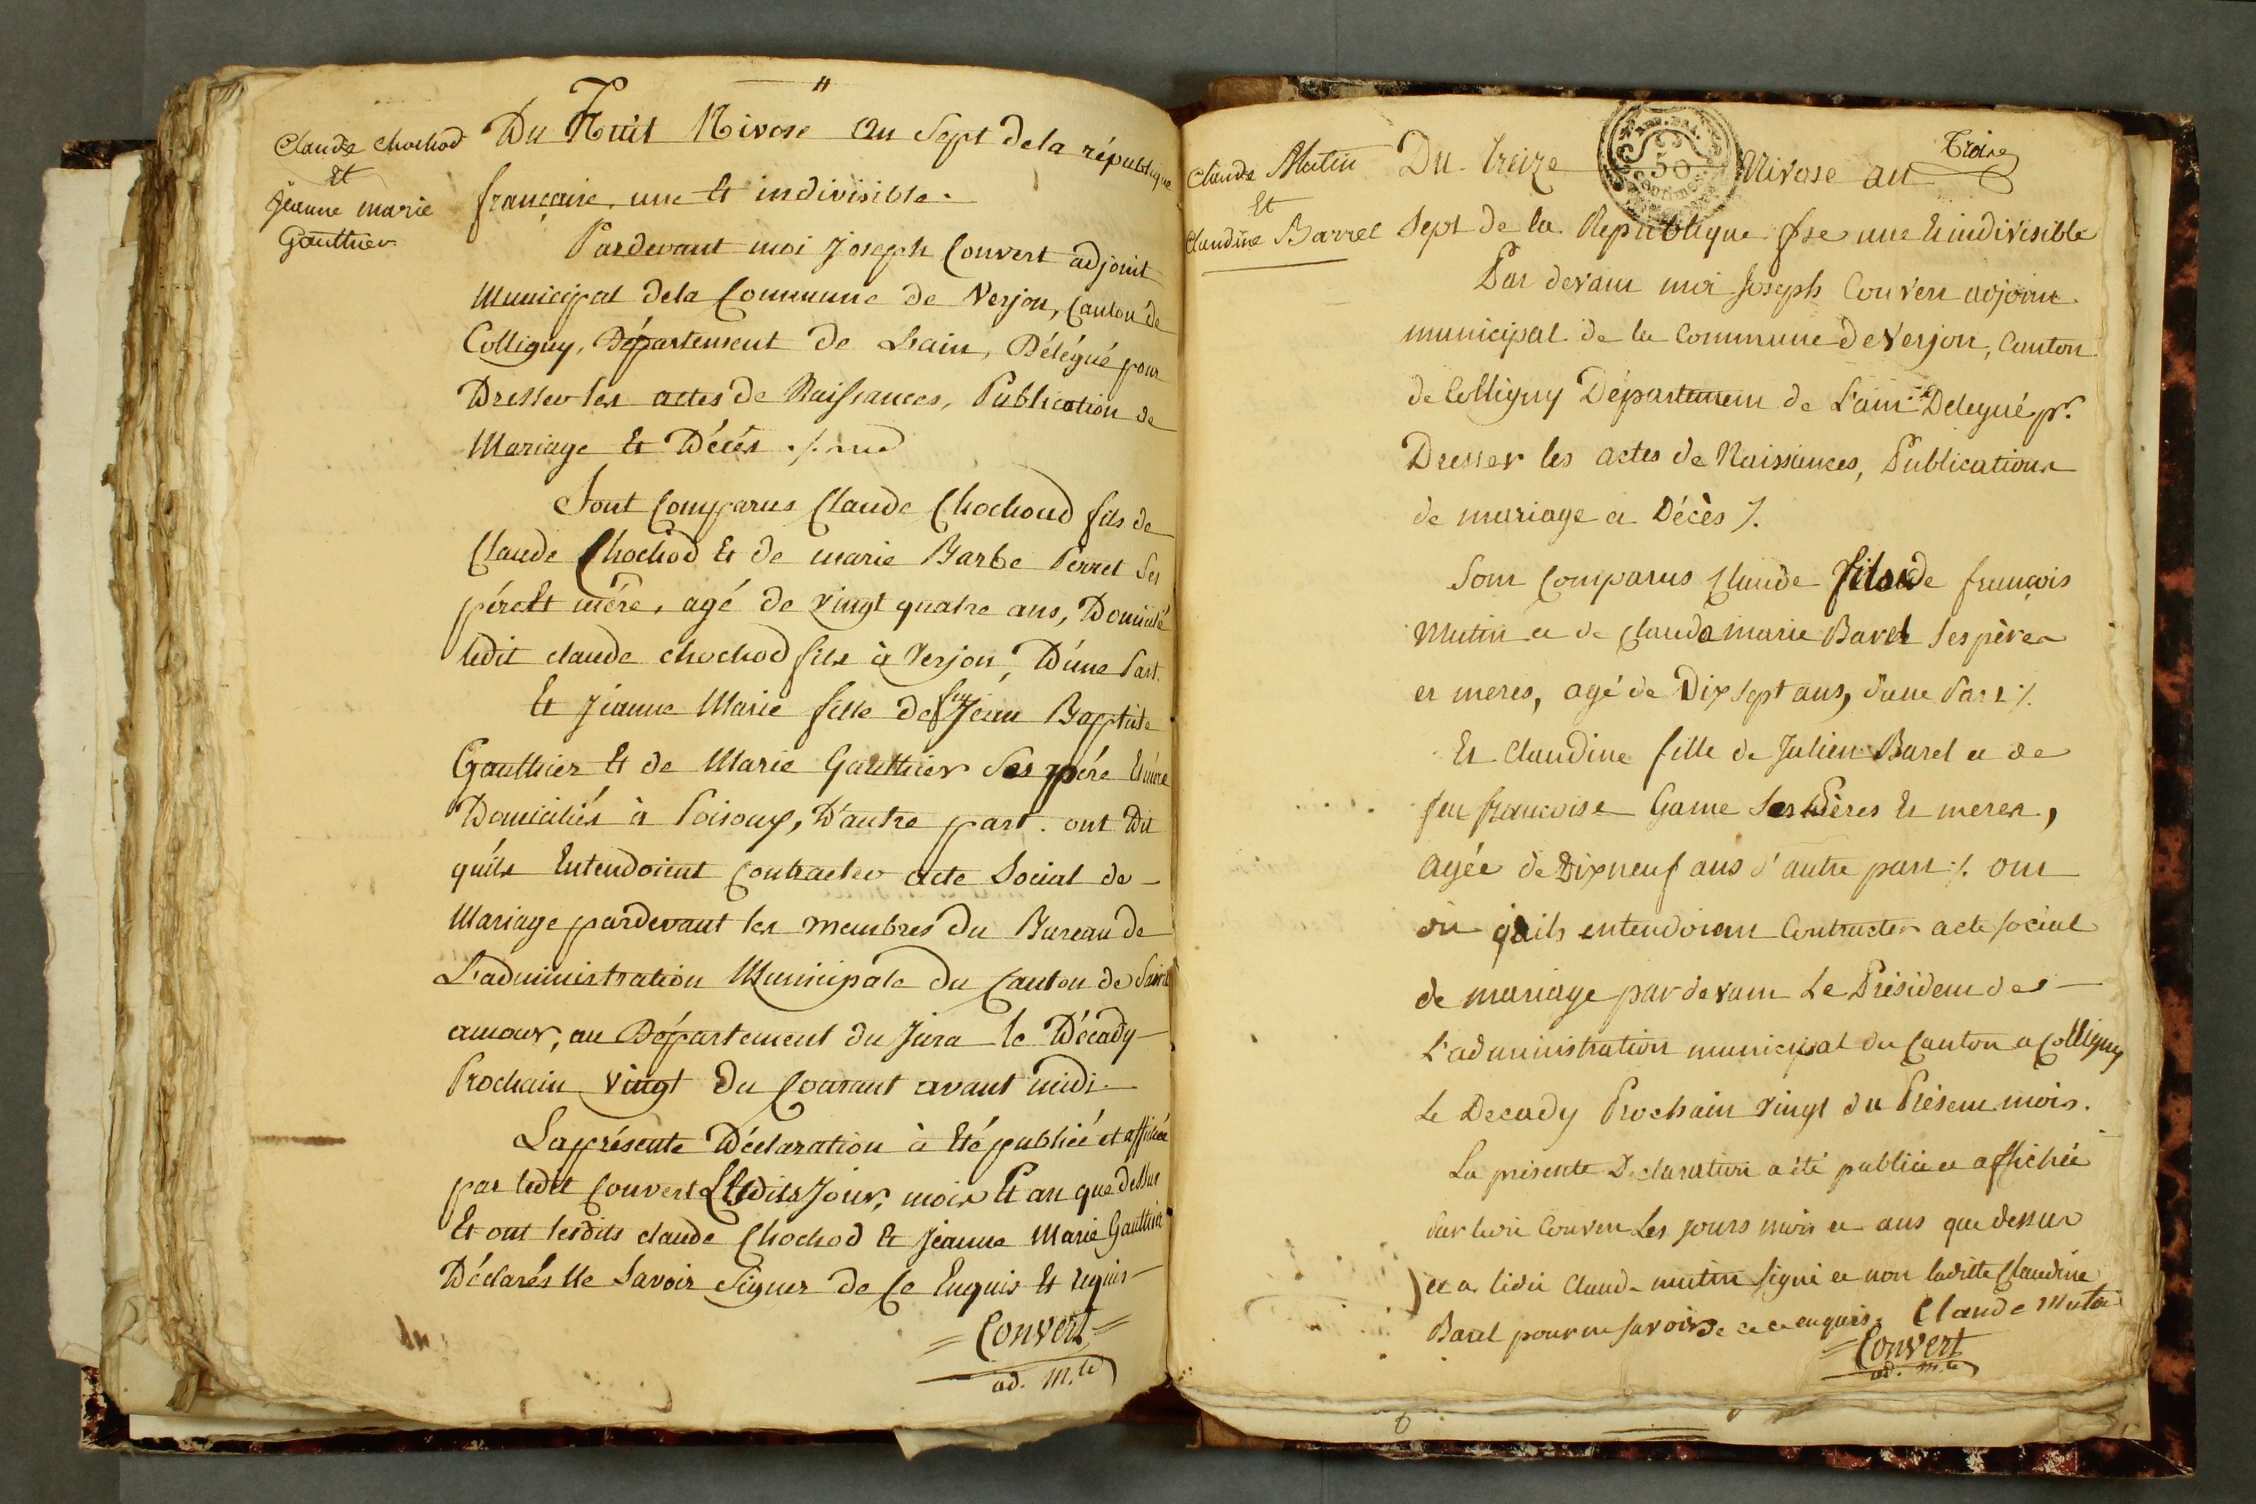 Claude Chochod
Et
Jeanne marie
Gauthier
Du Huit Nivose an Sept de la république
française, une Et indivisible.
Pardevant moi Joseph Convert adjoint
Municipal dela Commune de Verjon, Canton de
Colligny, Département de Lain, Délégué pour
Dresser les actes de Naissances, Publication de
Mariage Et Décés ./.
Sont Comparus Claude Chochoud fils de
Claude Chochod Et de marie Barbe Perret Ses
pére Et mére, agé de vingt quatre ans, Domicilié
ledit claude chochod fils à Verjon, D'une Part.
Et Jeanne Marie fille de feu Jean Baptiste
Gauthier Et de Marie Gauthier Ses pére Et mére
Domiciliés à Poisoux, D'autre part. ont Dit
qu'ils Entendoient Contracter acte Social de
Mariage pardevant les membres du Bureau de
L'administration Municipale du Canton de Saint
amour, au Département du Jura le Décady
Prochain vingt du Courant avant midi.
La présente Déclaration à Eté publiée et affichée
par ledit Convert Lesdits Jour, mois Et an que dessus
Et ont lesdits claude Chochod Et Jeanne Marie Gauthier
Déclarés Ne Savoir Signer de Ce Enquis Et requis
= Convert =
ad. m.le
Troize
Claude Mutin
Et
Claudine Barrel
Du Treize Nivose an
50
Sept de la Republique fse une Et indivisible
Par devant moi Joseph Convert adjoint
municipal de la Commune de Verjon, Canton
de Colligny Département de L'ain Delegué pr.
Dresser les actes de Naissances, Publications
de mariage et Décès /.
Sont Comparus Claude fils de françois
Mutin et de Claude marie Barel Ses pères
et meres, agé de Dix sept ans, d'une Part /.
Et Claudine fille de Julien Barel et de
feu françoise Game Ses Pères Et meres,
agée de Dix neuf ans d'autre part /. ont
dit qu'ils entendoient Contracter acte social
de mariage pardevant Le Président de
L'administration municipal du Canton a Colligny
Le Decady Prochain vingt du Présent mois.
La presente Declaration a été publiée et affichée
Par ledit Convert Les jours mois et ans que dessus
et a ledit Claude mutin signé et non laditte Claudine
Barel pour ne savoir de ce enquis. Claude Mutin
= Convert
ad. m.le